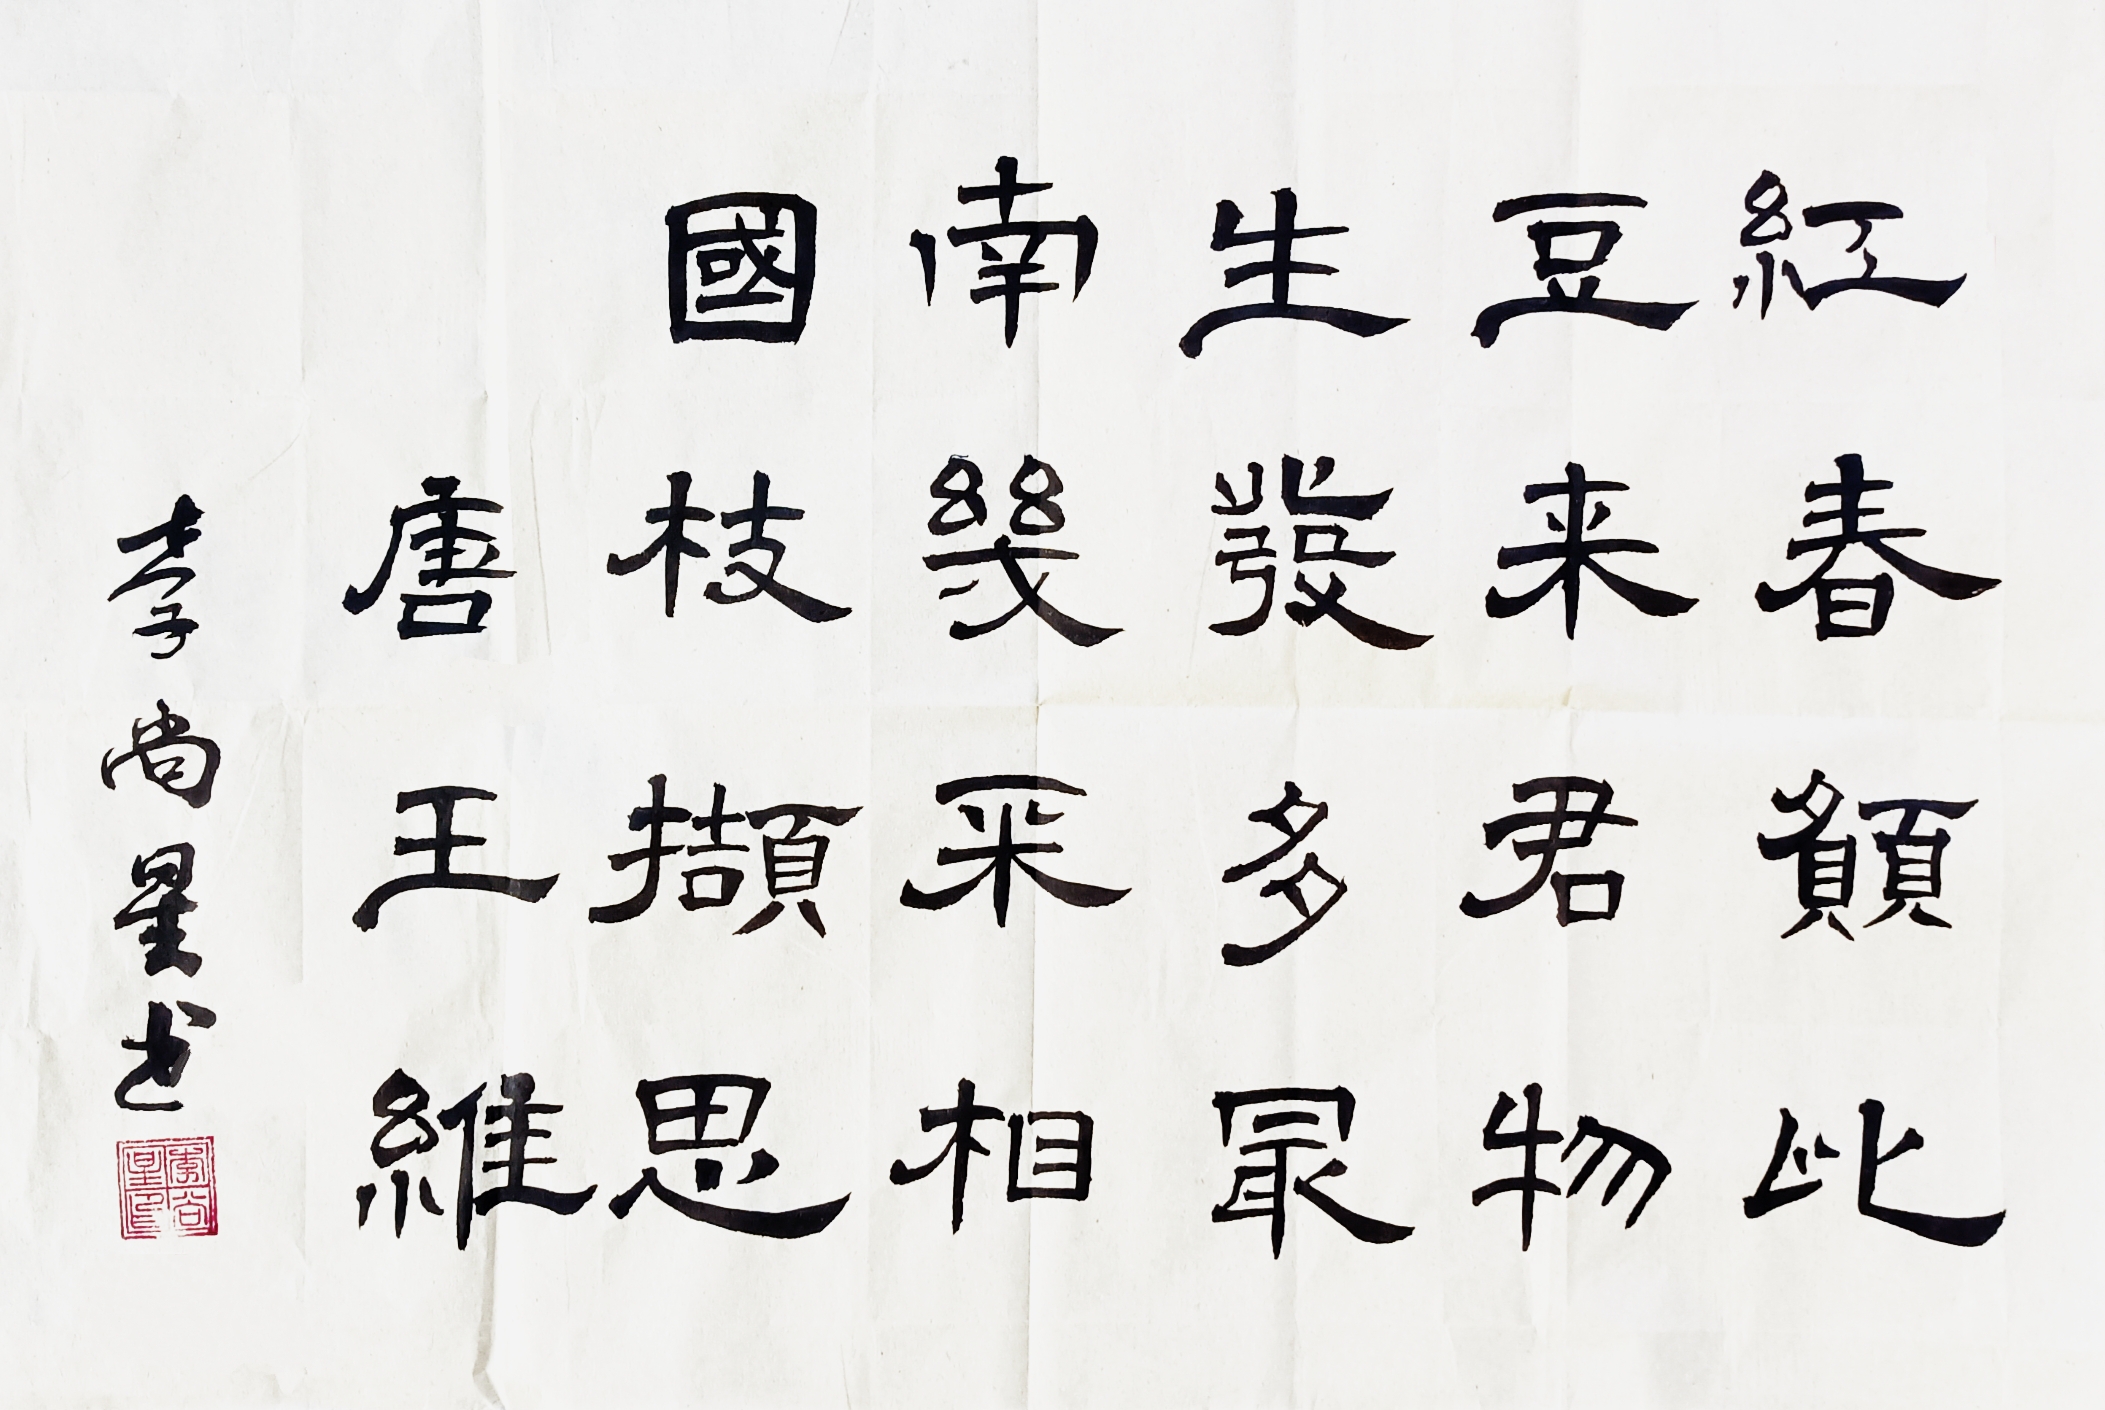 紅豆生南國
春来發幾枝
願君多采擷
此物最相思
唐王維
李尚星书
李尚星印